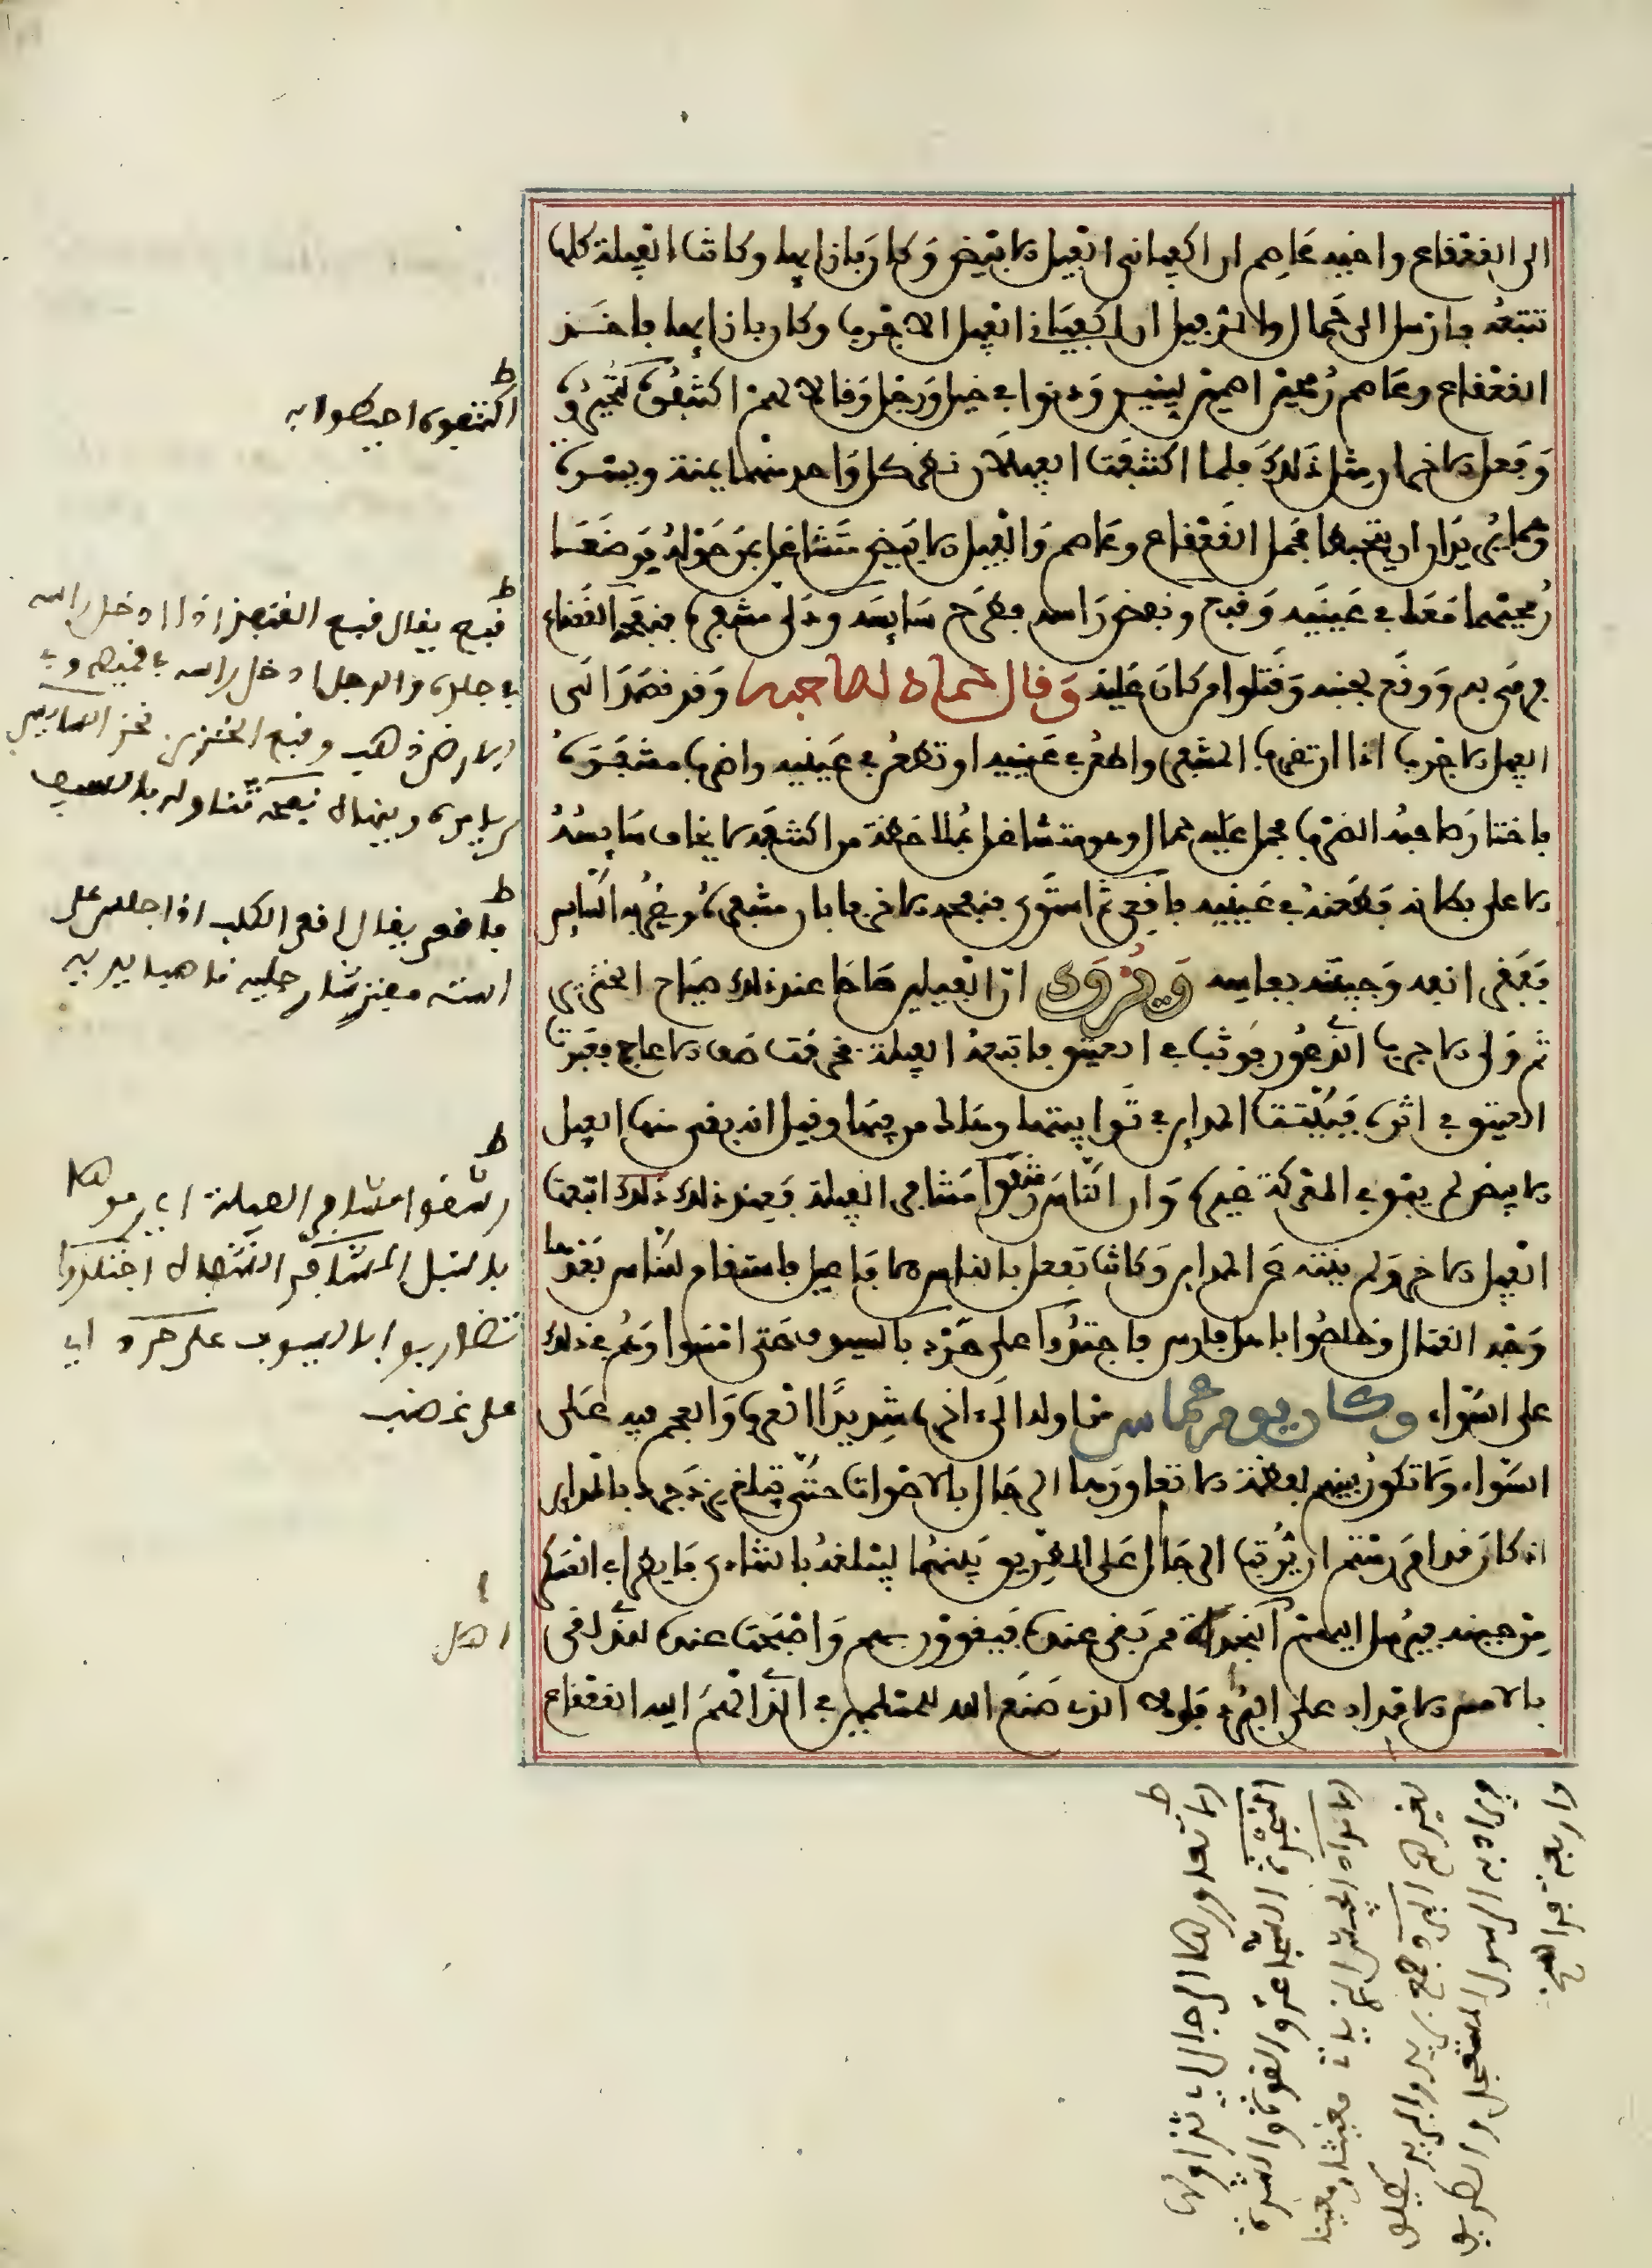 الى القعقاع واخيه عاصم ان اكفيانى الفيل الابيض وكان بازايهما وكانت الفيلة كلها
تتبعه وارسل الى حمال والربيل ان اكفيانى الفيل الاجرب وكان بازايهما فاخذ
القعقاع وعاصم رمحين اصمين لينين ودنوا في خيل ورجل وقالا لهم اكتنفوه لتحيروه
وفعل الاخران مثل ذلك فلما اكتنفت الفيلان نظر كل واحد منهما يمنة ويسرة
وهما يريدان ان يتخبطا فحمل القعقاع وعاصم والفيل الابيض متشاغل بمن حوله فوضعا
رمحيهما معا في عينيه وقبع ونفض راسه فطرح سايسه ودلى مشفره فنفحه القعقاع
فرمى به ووقع لجنبه وقتلوا من كان عليه وقال حمال لصاحبه وقد قصد الى
الفيل الاجرب اما ان تضرب المشفر واطعن في عينيه او تطعن في عينيه واضرب مشفره
فاختار صاحبه الضرب فحمل عليه حمال وهو متشاغل بملاحظة من اكتنفه لا يخاف سايسه
الا على بطانه فطعنه في عينيه فاقعى ثم استوى فنفحه الاخر فابان مشفره وبصر به السايس
فبقر انفه وجبينه بفاسه ويروى ان الفيلين صاحا عند ذلك صياح الخنزير
ثم ولى الاجرب الذي عور فوثب في العتيق فاتبعته الفيلة فخرقت صف الاعاجم فعبرت
العتيق في اثره فبيتت المداين في توابيتها وهلك من فيها وقيل انه بقي منها الفيل
الابيض لم يبق في المعركة غيره وان الناس رشقوا مشافر الفيلة فعند ذلك ذلك اتبعت
الفيل الاخر ولم يثنه عن المداين وكانت تفعل بالناس الافاعيل فاستقام للناس بعدها
وجه القتال وخلصوا باهل فارس فاجتلدوا على حرد بالسيوف حتى امسوا وهم في ذلك
على السواء وكان يوم عماس من اوله الى اخره شديدا العرب والعجم فيه على
السواء ولا تكون بينهم لفظة الا تعاورها الرجال بالاصوات حتى تبلغ يزدجرد بالمداين
اذ كان قد امر رستم ان يرتب الرجال على الطريق بينهما ليبلغه بالنداء ما يطرا في العسكر
من حينه فيرسل اليهم النجدات ممن بقي عنده فيقوون بهم واصبحت عنده للذي لقي
بالامس الامداد على البرد فلولا الذي صنع الله للمسلمين في الذي الهم اليه القعقاع
ط
اكتنفوه احيطوا به
ط
قبع يقال قبع القنفذ اذا ادخل راسه
في جلده والرجل ادخل راسه في قميصه وفي
الارض ذهب وقبع الخنزير نخر
ط
فاقعى يقال اقعى الكلب اذا جلس على
استه مفترشا رجليه ناصبا يديه
ط
رشقوا مشافر الفيلة اي رموها
بالنبل المشافر الشفاه اجتلدوا
تضاربوا بالسيوف على حرد اي
على غضب
اهل
ط
الا تعاورها الرجال اي تداولها
النجدة الشجاعة والقوة والشدة